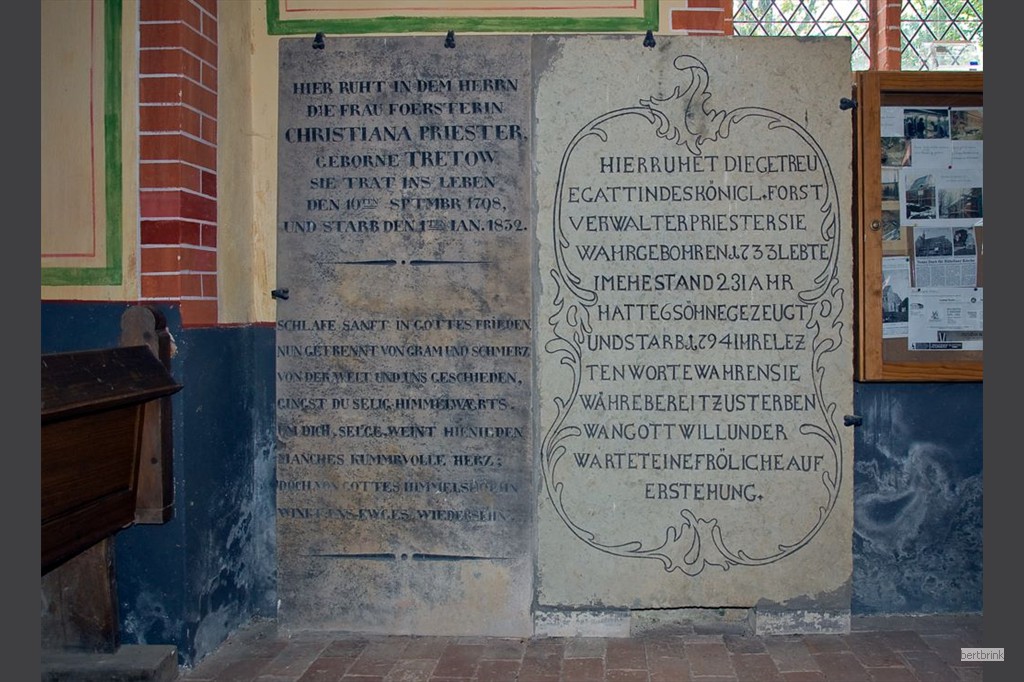 HIER RUHT IN DEM HERRN
DIE FRAU FOERSTERIN
CHRISTIANA PRIESTER,
GEBORNE TRETOW
SIE TRAT INS LEBEN
DEN 10TEN SPTMBR 1798,
UND STARB DEN 1TEN IAN. 1832.
SCHLAFE SANFT IN GOTTES FRIEDEN
NUN GETRENNT VON GRAM UND SCHMERZ
VON DER WELT UND UNS GESCHIEDEN,
GINGST DU SELIG, HIMMELWÆRTS.
UM DICH, SEL'GE, WEINT HIENIEDEN
MANCHES KUMMERVOLLE HERZ;
DOCH VON GOTTES HIMMELSHÖEHN
WINKT UNS EW'GES, WIEDERSEHN.
HIERRUHET DIEGETREU
EGATTINDESKÖNIGL.FORST
VERWALTERPRIESTERSIE
WAHRGEBOHREN.1733LEBTE
IMEHESTAND 23IAHR
HATTE6SÖHNEGEZEUGT
UNDSTARB.1794IHRELEZ
TENWORTEWAHRENSIE
WÄHREBEREITZUSTERBEN
WANGOTTWILLUNDER
WARTETEINEFRÖLICHEAUF
ERSTEHUNG.
bertbrink